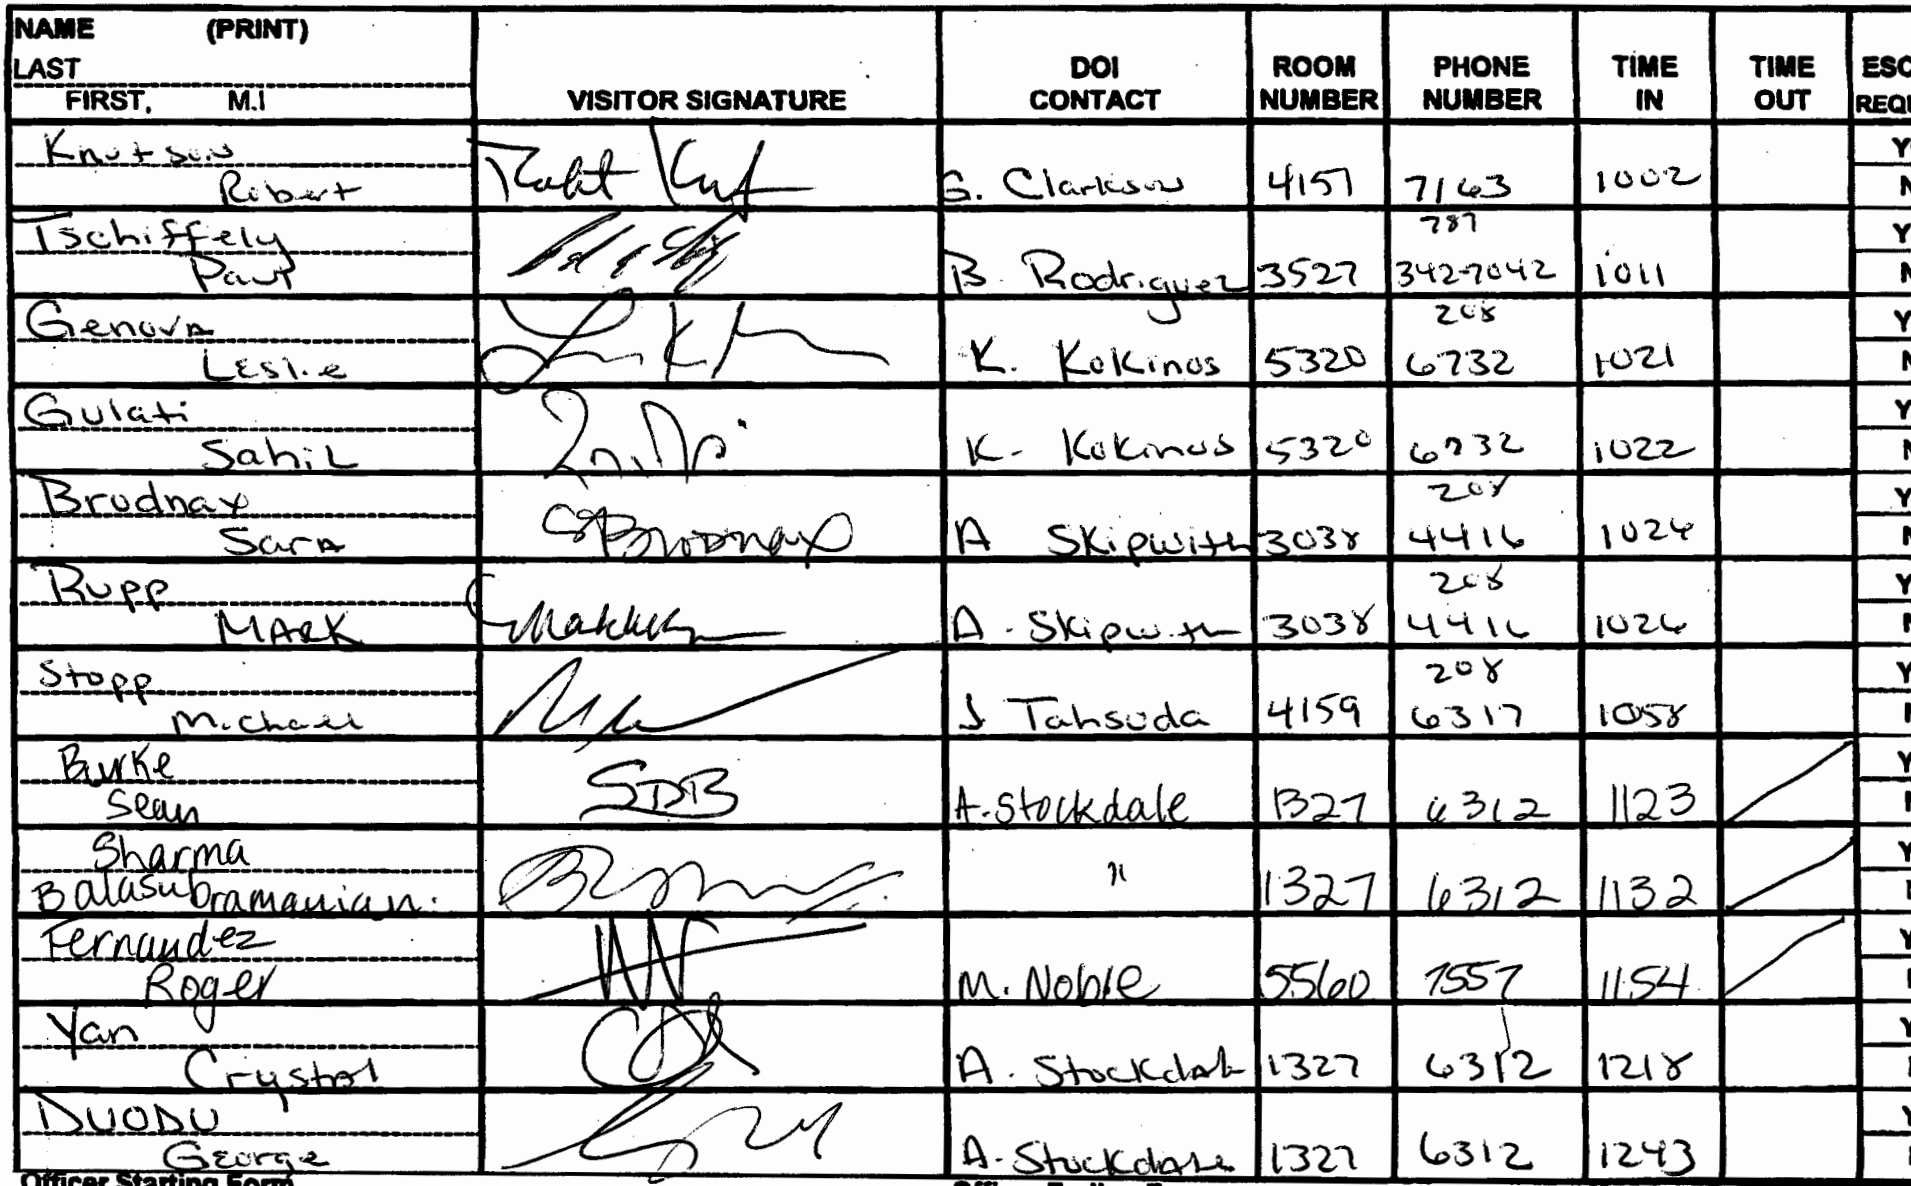 NAME (PRINT)
LAST
FIRST, M.I
VISITOR SIGNATURE
DOI CONTACT
ROOM NUMBER
PHONE NUMBER
TIME IN
TIME OUT
Knutson
Robert G. Clarkson 4157 7163 1002
Tschiffely 787
Paul B. Rodriguez 3527 342-7042 1011
Genova 208
Leslie K. Kokinos 5320 6732 1021
Gulati
Sahil K. Kokinos 5320 6732 1022
Brodnax 208
Sara SBrodnax A Skipwith 3038 4416 1026
Rupp 208
MARK A. Skipwith 3038 4416 1026
Stopp 208
Michael J Tahsuda 4159 6317 1058
Burke SDB
Sean A. Stockdale 1327 6312 1123
Sharma
Balasubramanian. " 1327 6312 1132
Fernandez
Roger M. Noble 5560 7557 1154
Yan
Crystal A. Stockdale 1327 6312 1218
DUODU
George A. Stockdale 1327 6312 1243
Officer Starting Form